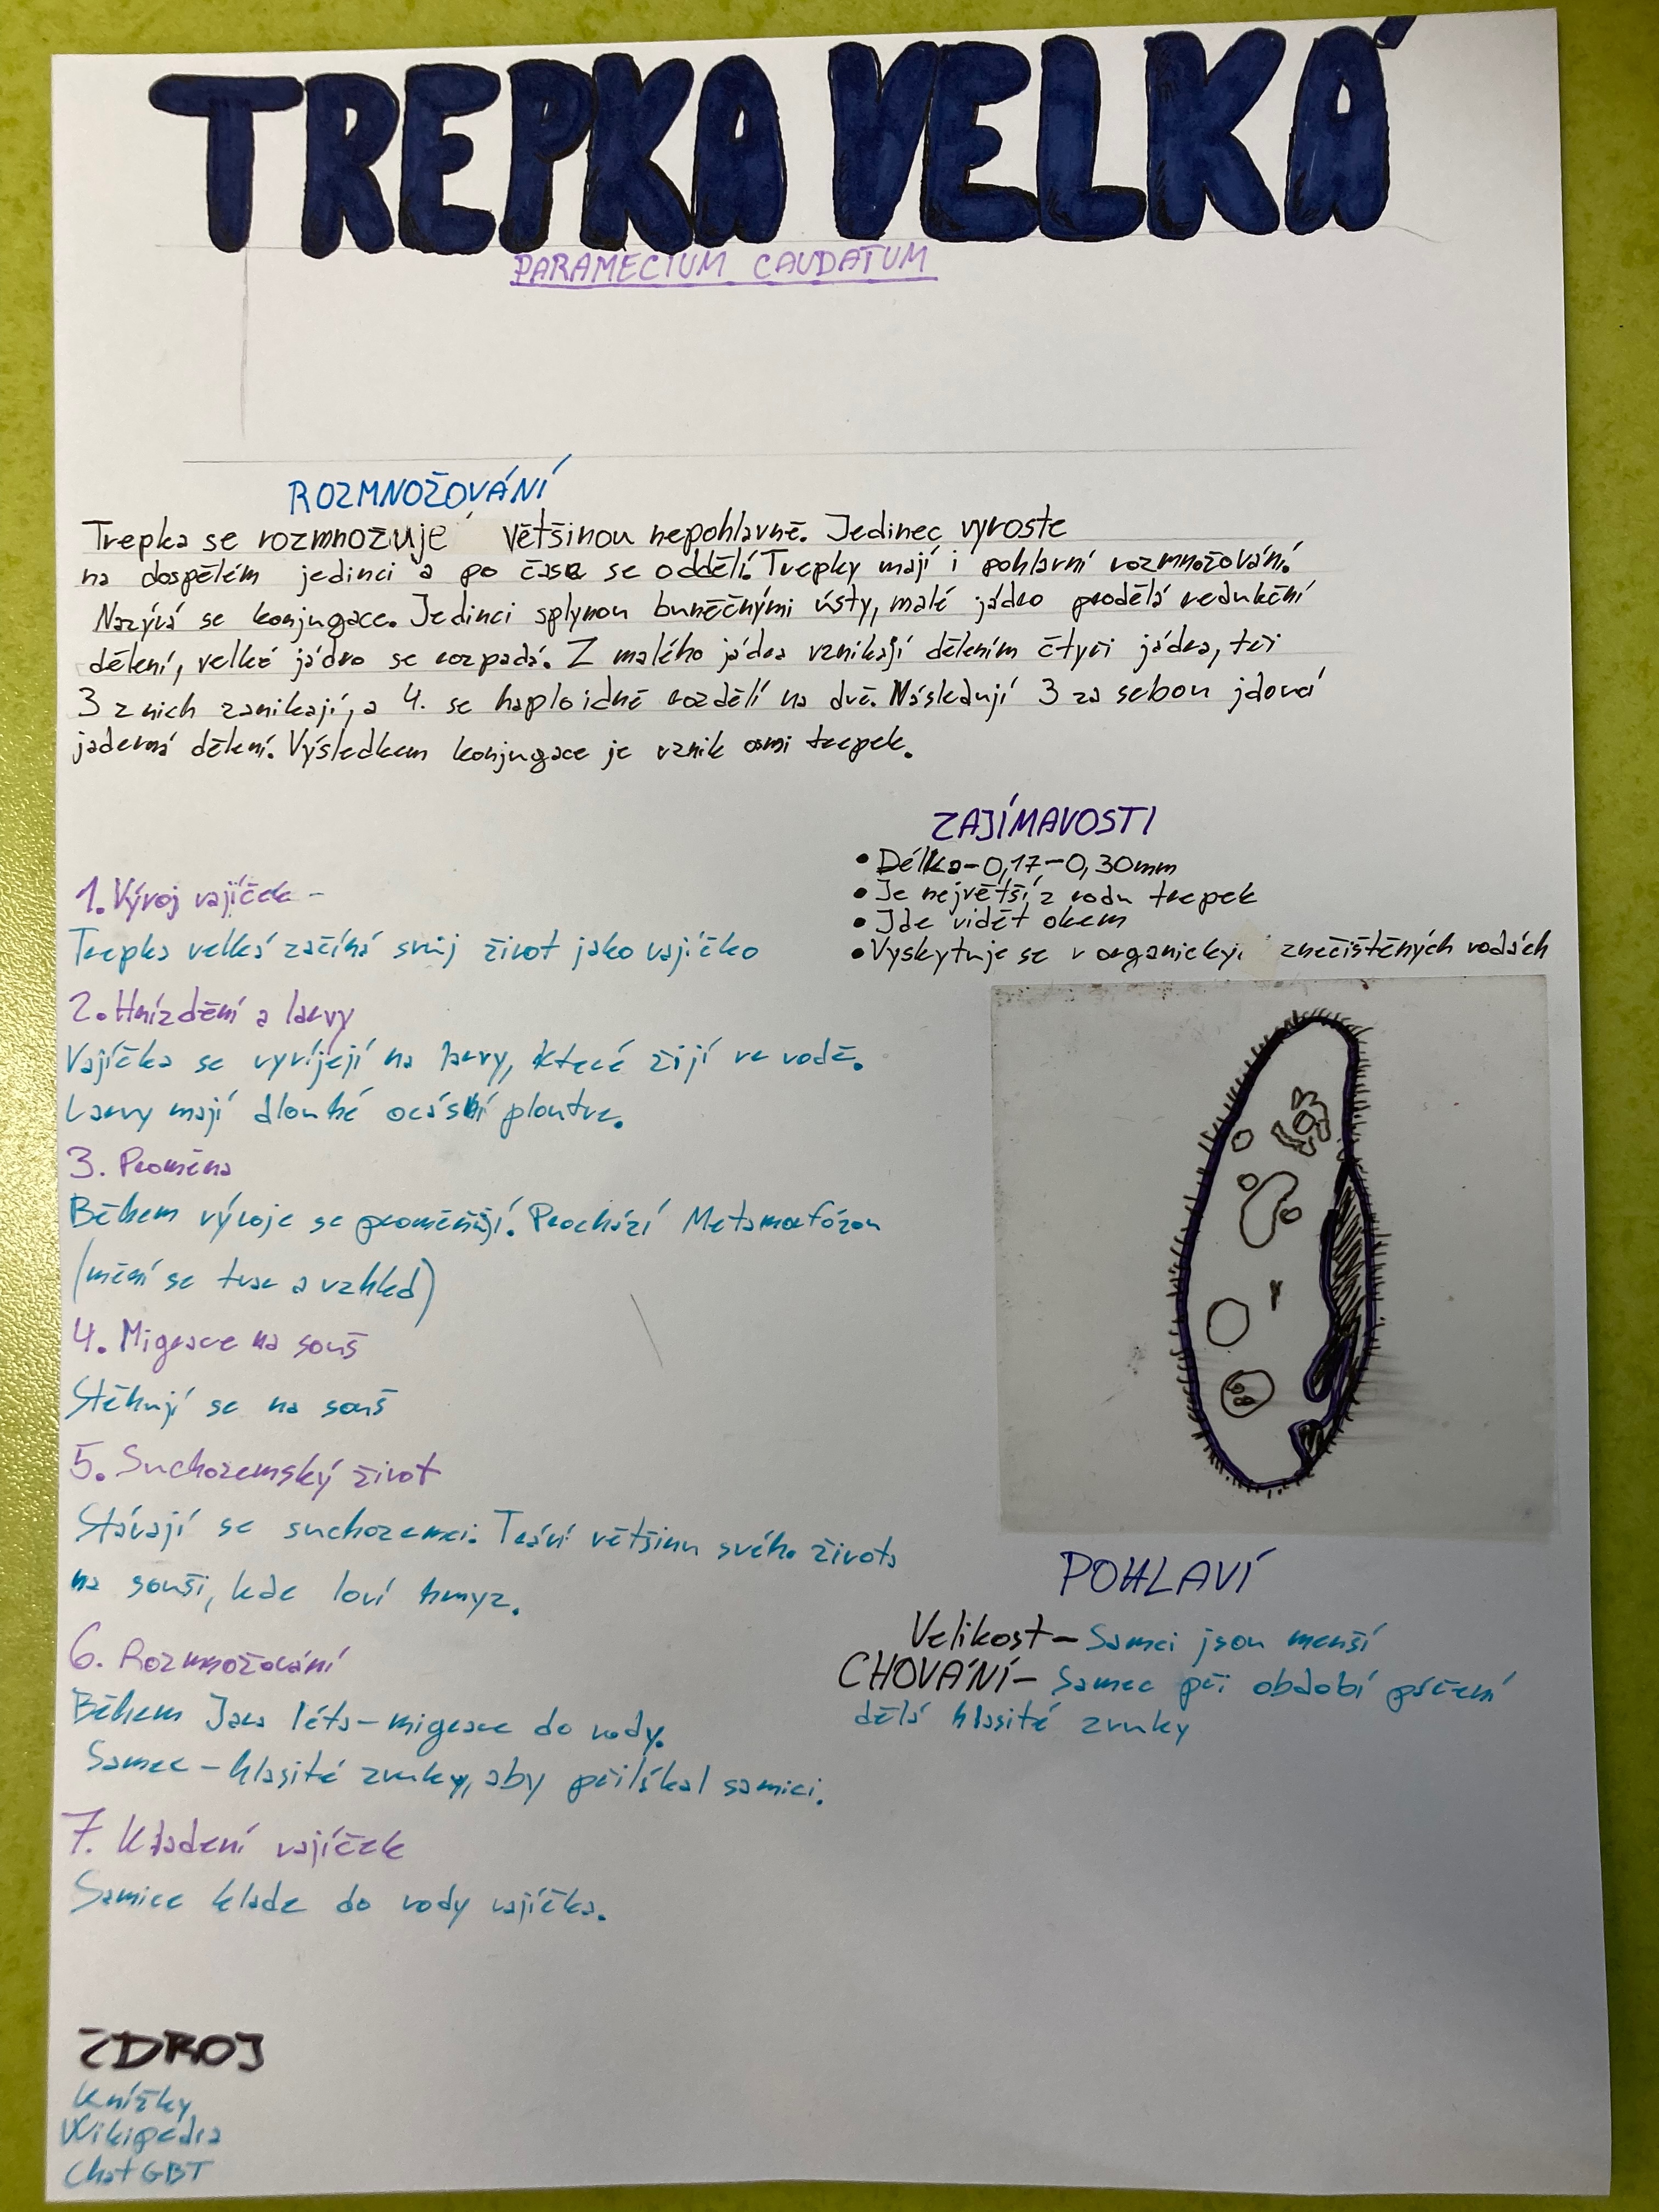 TREPKA VELKÁ
PARAMECIUM CAUDATUM
ROZMNOŽOVÁNÍ
Trepka se rozmnožuje většinou nepohlavně. Jedinec vyroste
na dospělém jedinci a po čase se oddělí. Trepky mají i pohlavní rozmnožování.
Nazývá se konjugace. Jedinci splynou buněčnými ústy, malé jádro prodělá redukční
dělení, velké jádro se rozpadá. Z malého jádra vznikají dělením čtyři jádra, tři
3 z nich zanikají, a 4. se haploidně rozdělí na dvě. Následují 3 za sebou jdoucí
jaderná dělení. Výsledkem konjugace je vznik osmi trepek.
ZAJÍMAVOSTI
• Délka-0,17-0,30mm
• Je největší z rodu trepek
• Jde vidět okem
• Vyskytuje se v organicky znečištěných vodách
1. Vývoj vajíček -
Trepka velká začíná svůj život jako vajíčko
2. Hnízdění a larvy
Vajíčka se vyvíjejí na larvy, které žijí ve vodě.
Larvy mají dlouhé ocásní ploutve.
3. Proměna
Během vývoje se proměňují. Prochází Metamorfózou
(mění se tvar a vzhled)
4. Migrace na souš
Stěhují se na souš
5. Suchozemský život
Stávají se suchozemci. Tráví většinu svého života
na souši, kde loví hmyz.
6. Rozmnožování
Během Jara léta-migrace do vody.
Samec-hlasité zvuky, aby přilákal samici.
7. Kladení vajíček
Samice klade do vody vajíčka.
POHLAVÍ
Velikost-Samci jsou menší
CHOVÁNÍ-Samec při období páření
dělá hlasité zvuky
ZDROJ
Knížky
Wikipedia
ChatGBT